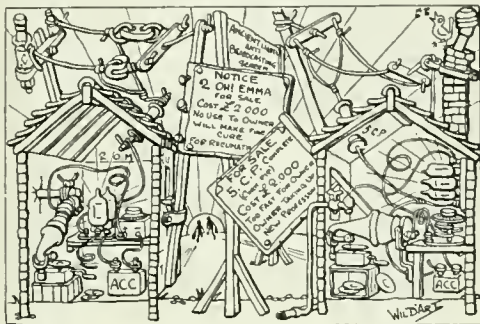 ANCIENT LIGHTS
ANTI
BROADCASTING
SCREEN
NOTICE
2 OH! EMMA
FOR SALE
COST £2000
NO USE TO OWNER
WILL MAKE FINE
CURE
FOR RHEUMATI
FOR SALE
5.C.P. COMPLETE
COST £2000
TOO FAST FOR OWNER
OWNER TAKING UP
NEW PROFESSION
2 O.M.
5CP
ACC
ACC
WILDART